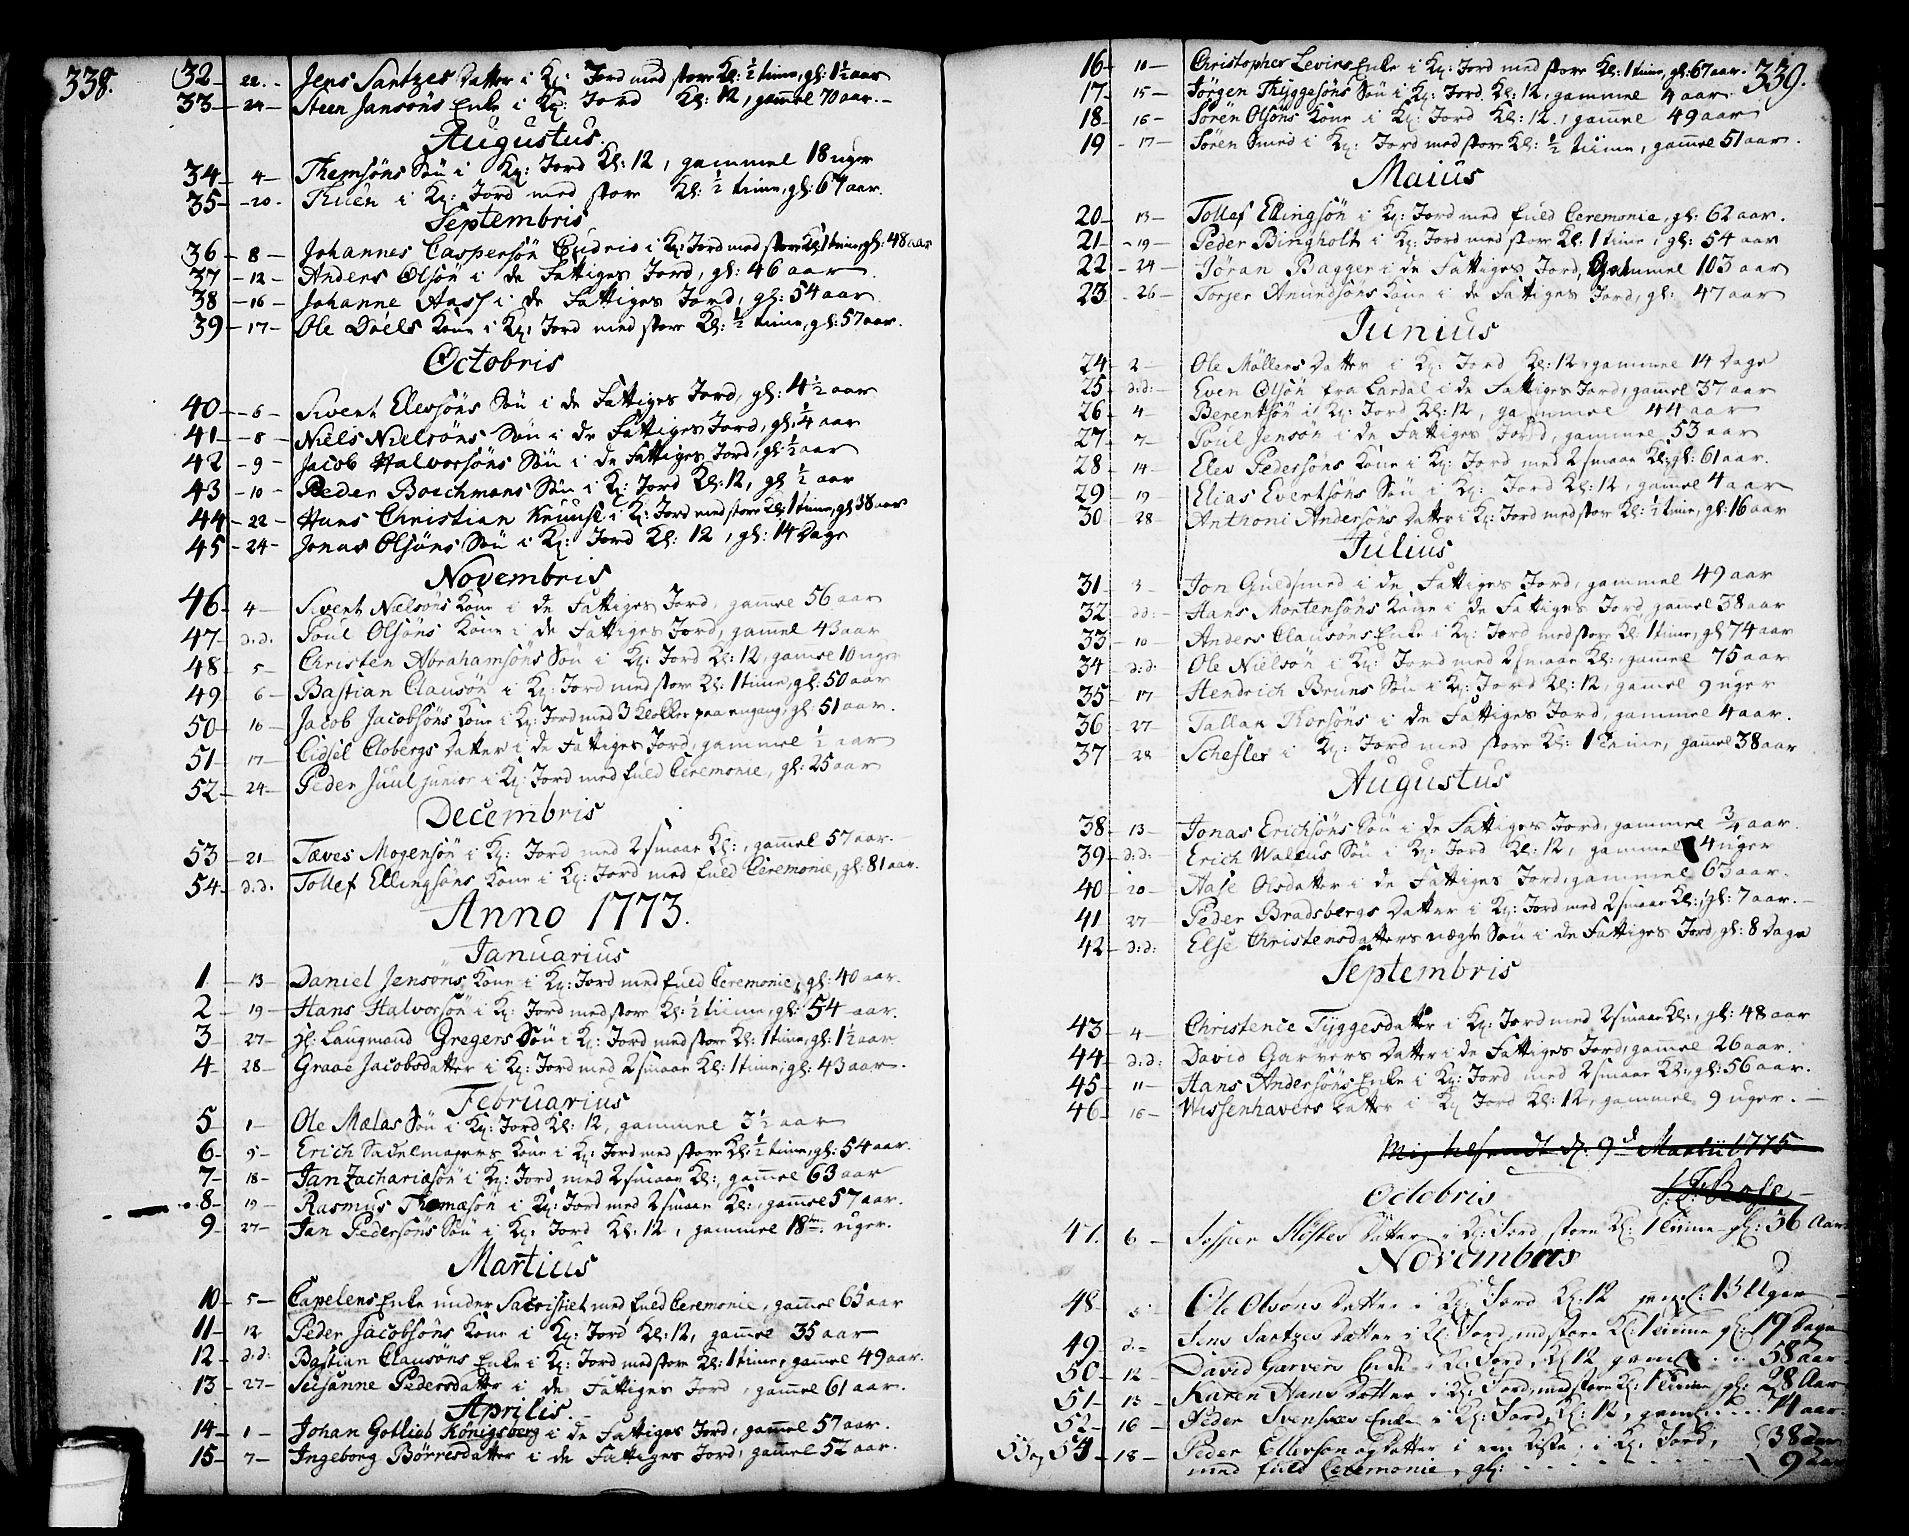 338.
32 - 22. - Jens Santzes Datter i Kʒ: Jord med store Kl: ½ time, gl: 1½ aar
33 - 24 - Steen Jansöns Enke i Kʒ: Jord Kl: 12, gammel 70 aar. -
Augustus.
34 - 4 - Themsöns Sön i Kʒ: Jord Kl: 12, gammel 18 uger
35 - 20. Thuen i Kʒ: Jord med store Kl: ½ time, gl: 67 aar.
Septembris
36 - 8 - Johannes Caspersön Cudrio i Kʒ: Jord med store Kl: 1 time, gl: 48 aar
37 - 12 - Anders Olsön i de Fattiges Jord, gl: 46 aar.
38 - 16 - Johanne Aass i de Fattiges Jord, gl: 54 aar.
39 - 17 - Ole Döels Kone i Kʒ: Jord med store Kl: ½ time, gl: 57 aar.
Octobris
40 - 6 - Sivert Elefsöns Sön i de Fattiges Jord, gl: 4½ aar
41 - 8 - Niels Nielsöns Sön i de Fattiges Jord, gl: ¼ aar
42 - 9 - Jacob Halvorsöns Sön i de Fattiges Jord, gl: ½ aar
43 - 10 - Peder Boschmans Sön i Kʒ: Jord Kl: 12, gl ½ aar
44 - 22 - Hans Christian Knuuse i Kʒ: Jord med store Kl: 1 time, gl 38 aar
45 - 24 - Jonas Olsöns Sön i Kʒ: Jord Kl: 12, gl: 14 Dage
Novembris
46 - 4 - Sivert Nielsöns Kone i de Fattiges Jord, gammel 56 aar
47 - d.d. Poul Olsöns Kone i de Fattiges Jord, gammel 43 aar
48 - 5 - Christen Abrahamsöns Sön i Kʒ: Jord Kl: 12, gammel 10 uger
49 6 - Bastian Clausön i Kʒ: Jord med store Kl: 1 time, gl: 50 aar
50 - 10 - Jacob Jacobsöns Kone i Kʒ: Jord med 3 Klokker paa engang, gl: 51 aar.
51 - 17 - Cidsel Clobergs Datter i de Fattiges Jord, gammel ½ aar
52 - 24 - Peder Juul junior i Kʒ: Jord med fuld Ceremonie, gl: 25 aar
Decembris
53 - 21 - Tæves Mogensön i Kʒ: Jord med 2 smaae Kl:, gammel 57 aar. -
54 - d.d. Tollef Ellingsöns Kone i Kʒ: Jord med fuld Ceremonie, gl: 81 aar.
Anno 1773.
Januarius
1 - 13 - Daniel Jensöns Kone i Kʒ: Jord med fuld Ceremonie, gl: 40 aar.
2 - 19 - Hans Halvorsön i Kʒ: Jord med store Kl: ½ time, gl: 54 aar.
3 27 - Hr: Laugmand Gregers Sön i Kʒ: Jord med store Kl: 1 time, gl: 1½ aar.
4 - 28 - Graae Jacobsdatter i Kʒ: Jord med 2 smaae Kl: 1 time, gl: 43 aar.
Februarius
5 1 - Ole Mælas Sön i Kʒ: Jord Kl: 12, gammel 3½ aar
6 - 5 - Erich Sadelmagers Kone i Kʒ: Jord med store Kl: ½ time, gl: 54 aar.
7 - 18 - Jan Zachariæsön i Kʒ: Jord, med 2 smaae Kl:, gammel 63 aar
8 - 19 - Rasmus Thomæsön i Kʒ: Jord med 2 smaae Kl:, gammel 57 aar.
9 - 27 - Jan Pedersöns Sön i Kʒ: Jord Kl: 12, gammel 18 uger.
Martius
10 - 5 - Capelens Enke under Sacristiet med fuld Ceremonie, gammel 65 aar
11 - 12 Peder Jacobsöns Kone i Kʒ: Jord Kl: 12, gammel 35 aar
12 - d.d: Bastian Clausöns Enke i Kʒ: Jord med store Kl: 1 time, gammel 49 aar.
13 - 27 - Susanne Pedersdatter i de Fattiges Jord, gammel 61 aar.
Aprilis. -
14 - 1 - Johan Gotlieb Königsberg i de Fattiges Jord, gammel 57 aar.
15 - 7 - Ingeborg Börresdatter i de Fattiges Jord, gammel 52 aar.
339.
16 - 10 - Christopher Levins Enke i Kʒ: Jord med store Kl: 1 time, gl: 67 aar.
17 - 15 - Jörgen Thyggesöns Sön i Kʒ: Jord Kl: 12, gammel 4 aar.
18 - 16 - Sören Olsöns Kone i Kʒ: Jord Kl: 12, gammel 49 aar
19 - 17 - Sören Smed i Kʒ: Jord med store Kl: ½ time, gammel 51 aar.
Maius
20 - 13 - Tollef Ellingsön i Kʒ: Jord med fuld Ceremonie, gl: 62 aar.
21 - 19 - Peder Bingholt i Kʒ: Jord med store Kl: 1 time, gl: 54 aar
22 - 24 - Jöran Bagger i de Fattiges Jord, gammel 103 aar
23 - 26 - Torjer Amundsöns Kone i de Fattiges Jord, gl: 47 aar
Junius
24 - 2 - Ole Möllers Datter i Kʒ: Jord Kl: 12, gammel 14 Dage
25 - d:d: - Even Olsön fra Lardal i de Fattiges Jord, gammel 37 aar
26 - 4 - Berentsön i Kʒ: Jord Kl: 12, gammel 44 aar
27 - 7 - Poul Jensön i de Fattiges Jord, gammel 53 aar
28 - 14 - Elev Pedersöns Kone i Kʒ: Jord med 2 smaae Kl:, gl: 61 aar.
29 - 19 - Elias Evertsöns Sön i Kʒ: Jord Kl: 12, gammel 4 aar
30 - 28 - Anthoni Andersöns Datter i Kʒ: Jord med store Kl: ½ time, gl: 16 aar
Julius
31 - 3 - Jon Guldsmed i de Fattiges Jord, gammel 49 aar
32 - dd: - Hans Mortensöns Kone i de Fattiges Jord gammel 38 aar
33 - 10 - Anders Clausöns Enke i Kʒ: Jord med store Kl: 1 time, gl 74 aar
34 - d:d: Ole Nielsön i Kʒ: Jord med 2 smaae Kl:, gammel 75 aar
35 - 17 Hendrich Bruns Sön i Kʒ: Jord Kl: 12, gammel 9 uger
36 - 27 - Tallak Thorsöns i de Fattiges Jord, gammel 4 aar.
37 - 28 Schefler i Kʒ: Jord med store Kl: 1 time, gammel 38 aar
Augustus
38 - 13 - Jonas Erichsöns Sön i de Fattiges Jord, gammel ¾ aar.
39 - d:d: Erich Waleus Sön i Kʒ: Jord Kl: 12, gammel 4 uger
40 - 20 - Aase Olsdatter i de Fattiges Jord, gammel 63 aar.
41 27 - Peder Bradsbergs Datter i Kʒ: Jord med 2 smaae Kl:, gl: 7 aar. -
42 - d:d: Else Christensdatters uægte Sön i de Fattiges Jord gl: 8 Dage
Septembris
43 - 4 - Christence Tyggesdatter i Kʒ: Jord med 2 smaae Kl:, gl: 48 aar
44 - d:d: David Garvers Datter i de Fattiges Jord, gammel 26 aar.
45 - 11 - Hans Andersöns Enke i Kʒ: Jord med 2 smaae Kl: gl: 56 aar.
46 - 16 - Wissenhavers Datter i Kʒ: Jord Kl: 12, gammel 9 uger. -
Mig tilsendt d. 9d Martii 1775
Octobris
47. 6 - Jesper Höstes Datter i Kʒ: Jord store Kl: 1 time gl: 36 Aar
Novembris
48 - 5 - Ole Olsöns Datter i Kʒ: Jord Kl: 12 gaml: 13 Uger
49 d. - Jens Santzes Datter i Kʒ: Jord med store Kl: 1 time gl: 19 Dage
50 - 12 - David Garvers Enke i Kʒ: Jord, Kl 12 gammel 58 aar
51 - 13 - Karen Hans Datter i Kʒ: Jord, med store Kl: 1 time, gl: 28 Aar
52 - 16 - Peder Svenses Enke i Kʒ: Jord, Kl: 12, gaml: 74 aar
53 og 54 - 18 - Peder Ellerson og Datter i een Kiste i Kʒ: Jord, 38 aar
med fuld Ceremonie, gl: 9 aar